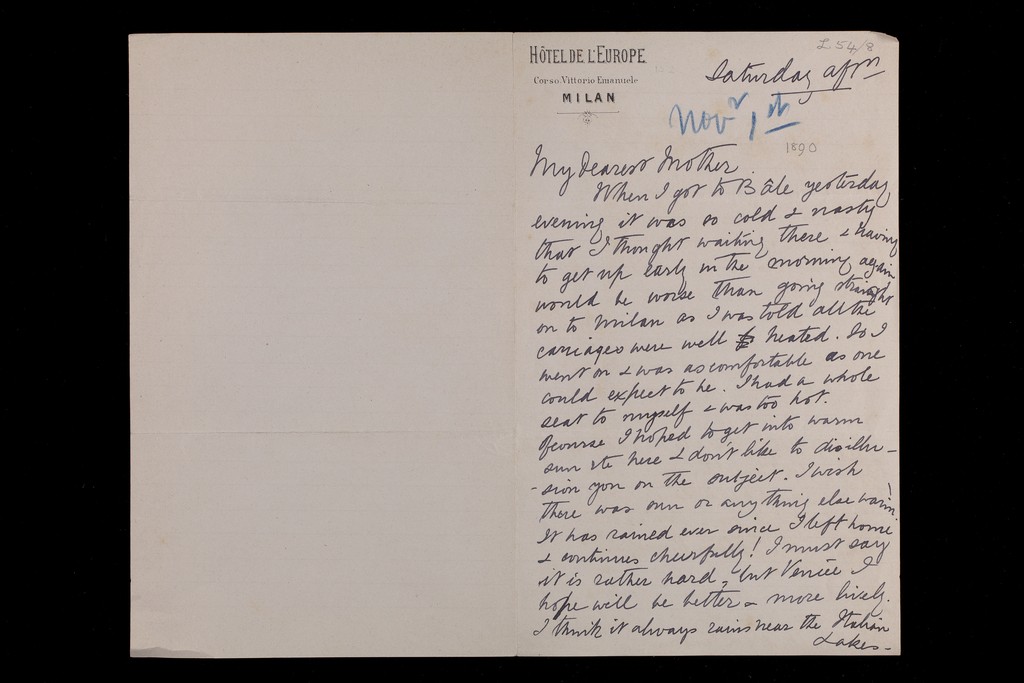 L 54/8
HÔTEL DE L'EUROPE
Corso Vittorio Emanuele
MILAN
Saturday afrn
Novr 1st
1890
My dearest Mother
When I got to Bâle yesterday
evening it was so cold & nasty
that I thought waiting there & having
to get up early in the morning again
would be worse than going straight
on to Milan as I was told all the
carriages were well heated. So I
went on & was as comfortable as one
could expect to be. I had a whole
seat to myself & was too hot.
Of course I hoped to get into warm
sun etc here & don't like to disillu-
-sion you on the subject. I wish
there was sun or anything else warm!
It has rained ever since I left home
& continues cheerfully! I must say
it is rather hard, but Venice I
hope will be better & more lively.
I think it always rains near the Italian
Lakes-